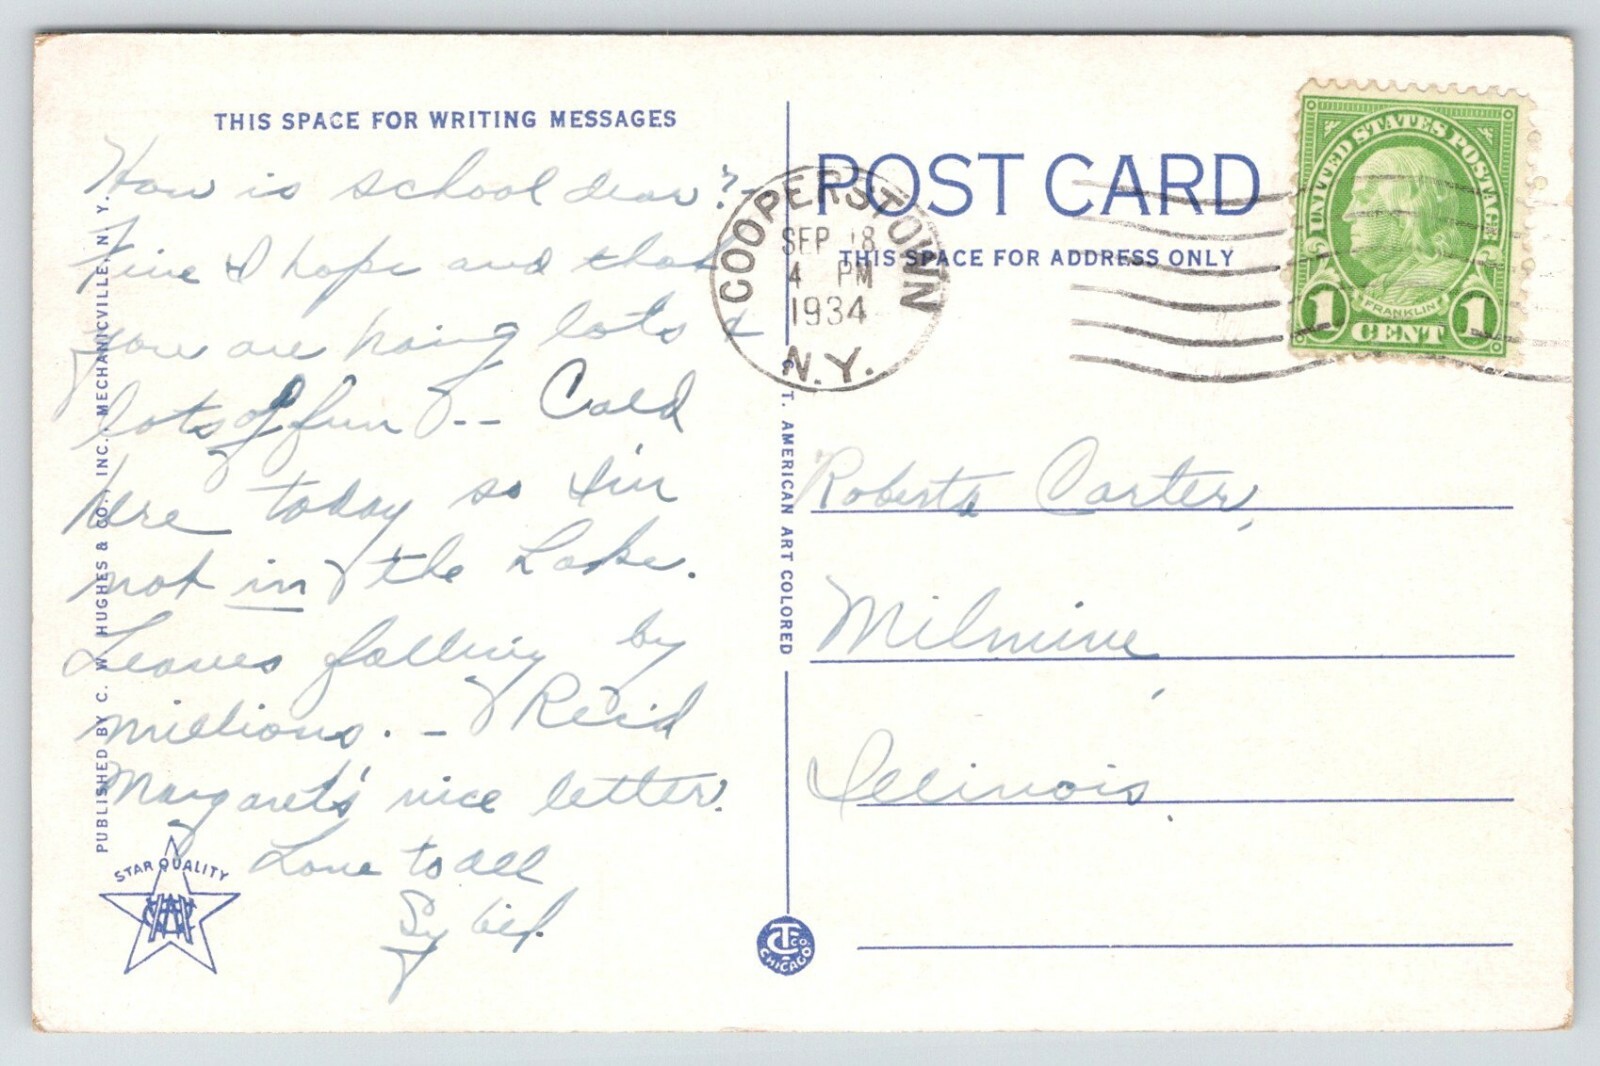 THIS SPACE FOR WRITING MESSAGES
How is school dear?-
Fine I hope and that
you are having lots &
lots of fun. -- Cold
here today so I'm
not in the Lake.
Leaves falling by
millions. - Rec'd
Margaret's nice letter.
Love to all
Sybil.
PUBLISHED BY C. W. HUGHES & CO., INC., MECHANICVILLE, N. Y.
STAR QUALITY
COOPERSTOWN
SEP 18
4 PM
1934
N.Y.
C. T. AMERICAN ART COLORED
CT CO
CHICAGO
POST CARD
THIS SPACE FOR ADDRESS ONLY
UNITED STATES POSTAGE
FRANKLIN
1 CENT 1
Roberta Carter,
Milmine,
Illinois.